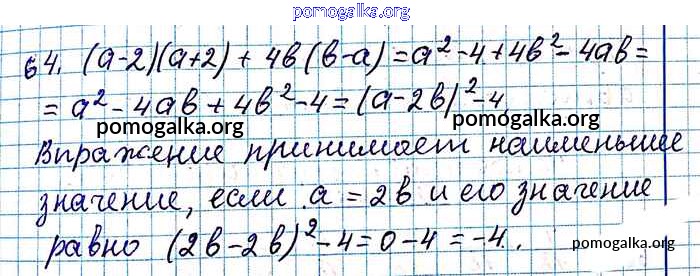 pomogalka.org
64. (а-2)(а+2) + 4в(в-а) = а² - 4 + 4в² - 4ав =
= а² - 4ав + 4в² - 4 = (а-2в)² - 4
pomogalka.org pomogalka.org
Выражение принимает наименьшее
значение, если а = 2в и его значение
равно (2в-2в)² - 4 = 0 - 4 = -4.
pomogalka.org